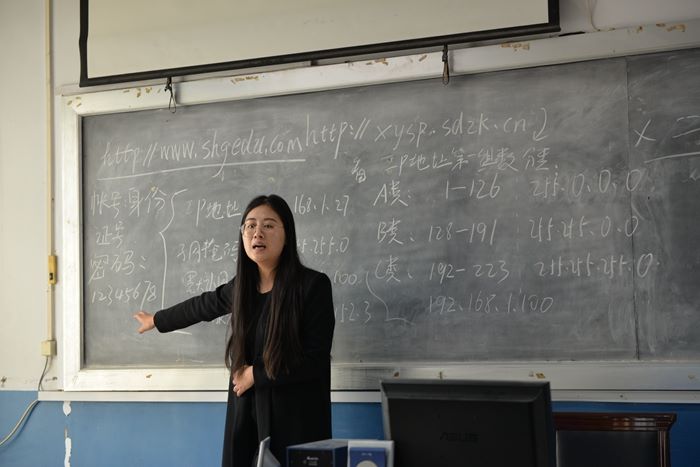 http://www.shgedu.com http://xysp.sdzk.cn
帐号:身份
证号
密码:
12345678
IP地址
168.1.27
255.0
100
52.3
IP地址第一组数分类:
A类: 1-126 255.0.0.0
B类: 128-191 255.255.0.0
C类: 192-223 255.255.255.0
192.168.1.100
ASUS